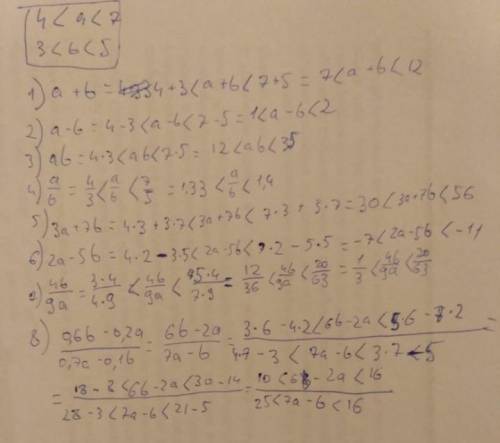 4 < a < 7
3 < b < 5
1) a + b = 4+3 < a + b < 7 + 5 = 7 < a + b < 12
2) a - b = 4 - 3 < a - b < 7 - 5 = 1 < a - b < 2
3) ab = 4·3 < ab < 7·5 = 12 < ab < 35
4) a/b = 4/3 < a/b < 7/5 = 1,33 < a/b < 1,4
5) 3a + 7b = 4·3 + 3·7 < 3a + 7b < 7·3 + 5·7 = 30 < 3a + 7b < 56
6) 2a - 5b = 4·2 - 3·5 < 2a - 5b < 7·2 - 5·5 = -7 < 2a - 5b < -11
4b/9a = 3·4/4·9 < 4b/9a < 5·4/7·9 = 12/36 < 4b/9a < 20/63 = 1/3 < 4b/9a < 20/63
8) 0,6b - 0,2a / 0,7a - 0,1b = 6b - 2a / 7a - b = 3·6 - 4·2 < 6b - 2a < 5·6 - 7·2 / 4·7 - 3 < 7a - b < 3·7 - 5 =
= 18 - 8 < 6b - 2a < 30 - 14 / 28 - 3 < 7a - b < 21 - 5 = 10 < 6b - 2a < 16 / 25 < 7a - b < 16